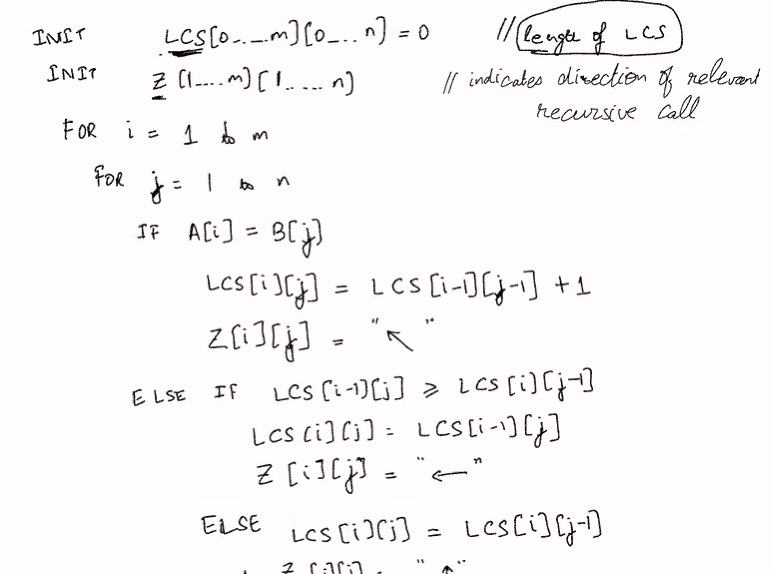 INIT LCS[0....m][0...n] = 0 // length of LCS
INIT Z[1....m][1.....n] // indicates direction of relevant
recursive call
FOR i = 1 to m
FOR j = 1 to n
IF A[i] = B[j]
LCS[i][j] = LCS[i-1][j-1] + 1
Z[i][j] = "↖"
ELSE IF LCS[i-1][j] ≥ LCS[i][j-1]
LCS[i][j] = LCS[i-1][j]
Z[i][j] = "←"
ELSE LCS[i][j] = LCS[i][j-1]
Z[i][j] = "↑"